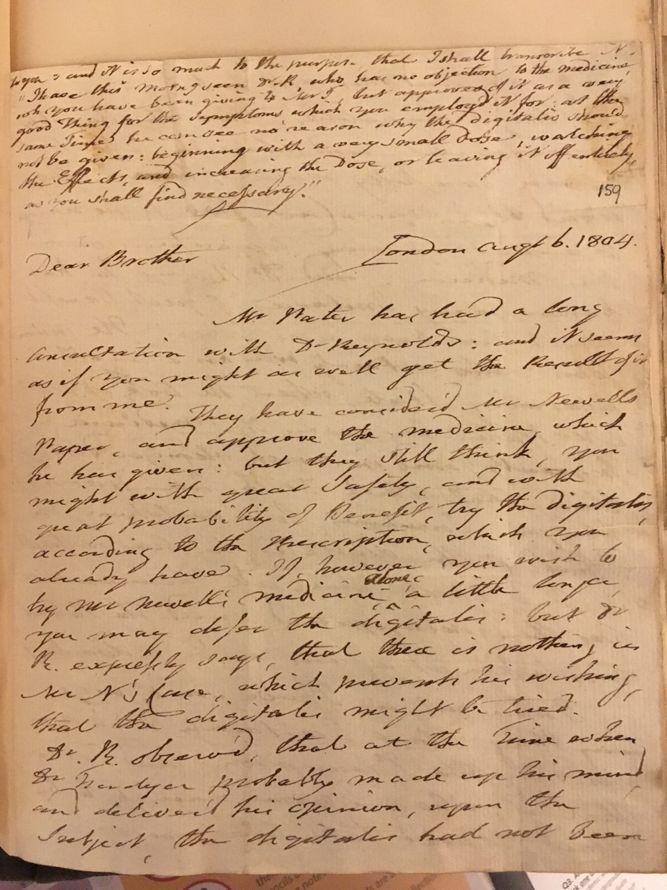 to you: and it is so much to the purpose that I shall transcribe it.
"I have this morng seen Dr. R, who has no objection to the medicine
wh. you have been giving to Mr. , but approves of it as a very
good Thing for the Symptoms which you employed it for: at the
same Time, he can see no reason why the digitalis should
not be given: beginning with a very small Dose, watching
the Effects, and increasing the Dose, or leaving it off entirely,
as you shall find necessary."
159
London Augt 6. 1804.
Dear Brother
Mr Vater has had a long
Consultation with Dr Reynolds: and it seems
as if you might as well get the Result of it
from me. They have consider'd Mr Newell's
Paper, and approve the medicine, which
he has given: but they still think, you
might with great Safety, and with
great probability of Benefit, try the digitalis,
according to the Prescription, which you
already have. If however you wish to
try Mr Newell's medicine alone a little longer,
you may defer the digitalis: but Dr
R. expressly says, that there is nothing in
Mr N's Case, which prevents his wishing,
that the digitalis might be tried.
Dr. R. observ'd, that at the Time when
Dr probably made up his mind,
and deliver'd his opinion, upon the
Subject, the digitalis had not been